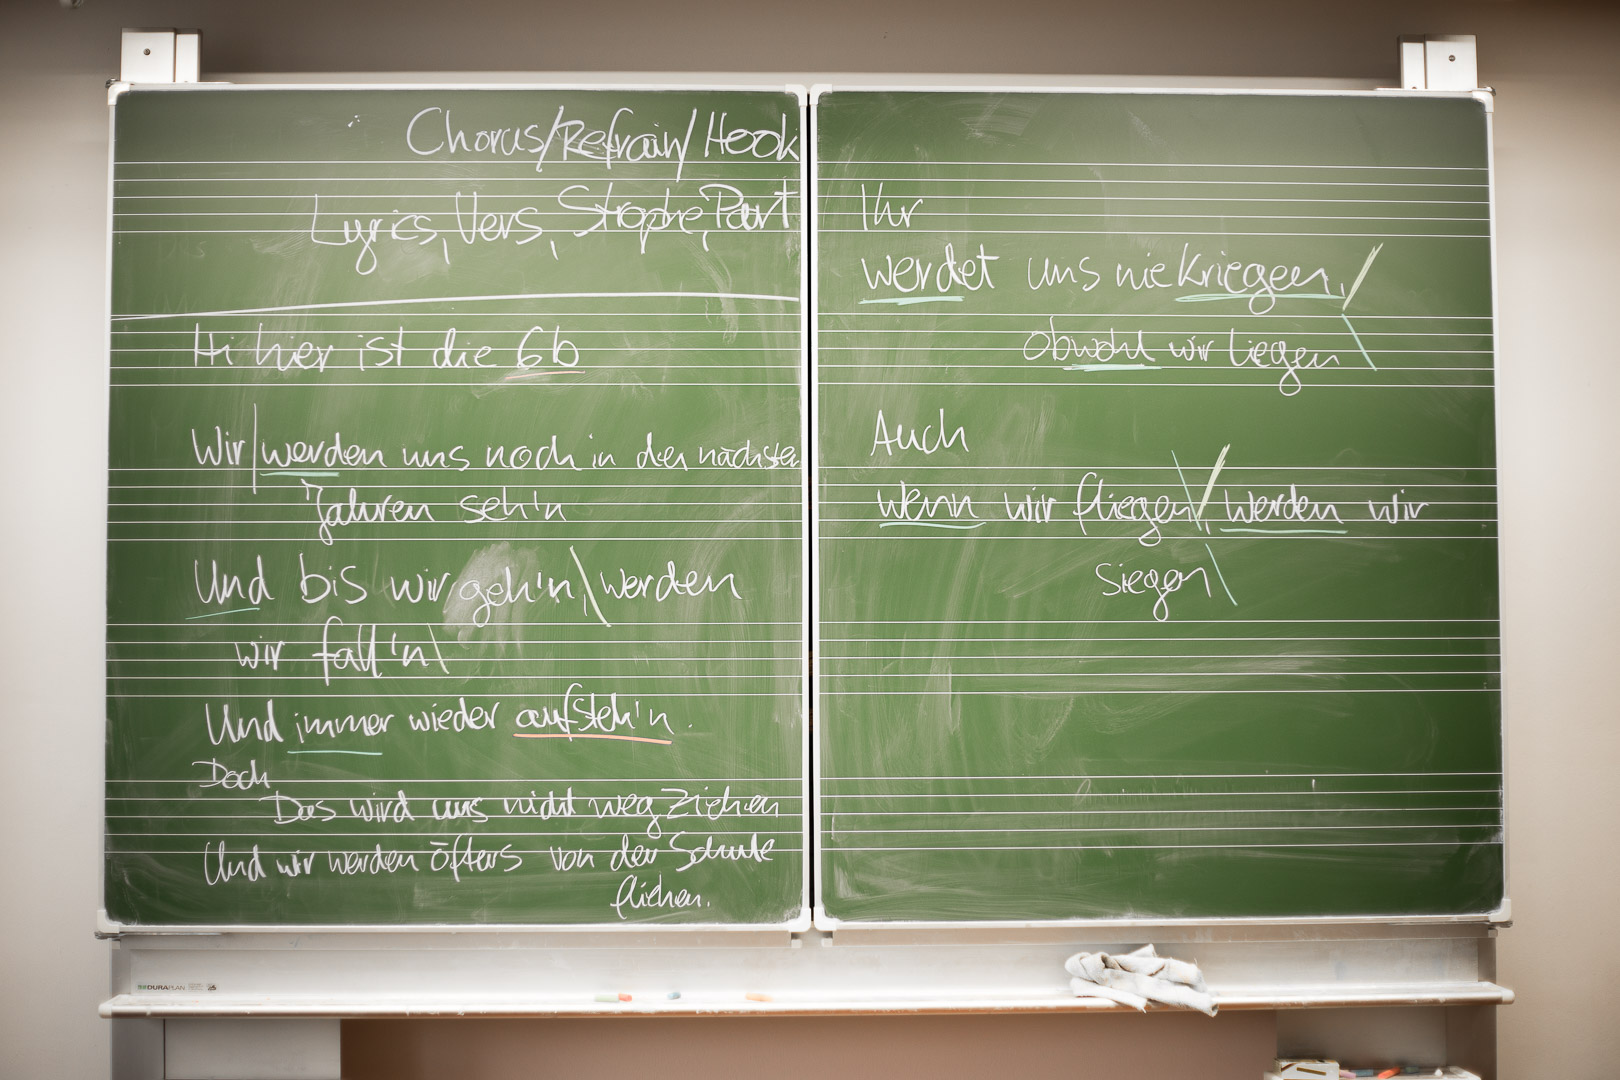 Chorus/Refrain/Hook
Lyrics, Vers, Strophe, Part
Hi hier ist die 6b
Wir werden uns noch in den nächsten
Jahren seh'n
Und bis wir geh'n, werden
wir fall'n
Und immer wieder aufsteh'n.
Doch
Das wird uns nicht weg ziehen
Und wir werden öfters von der Schule
fliehen.
Ihr
werdet uns nie kriegen,
obwohl wir liegen
Auch
wenn wir fliegen, werden wir
siegen
DURAPLAN